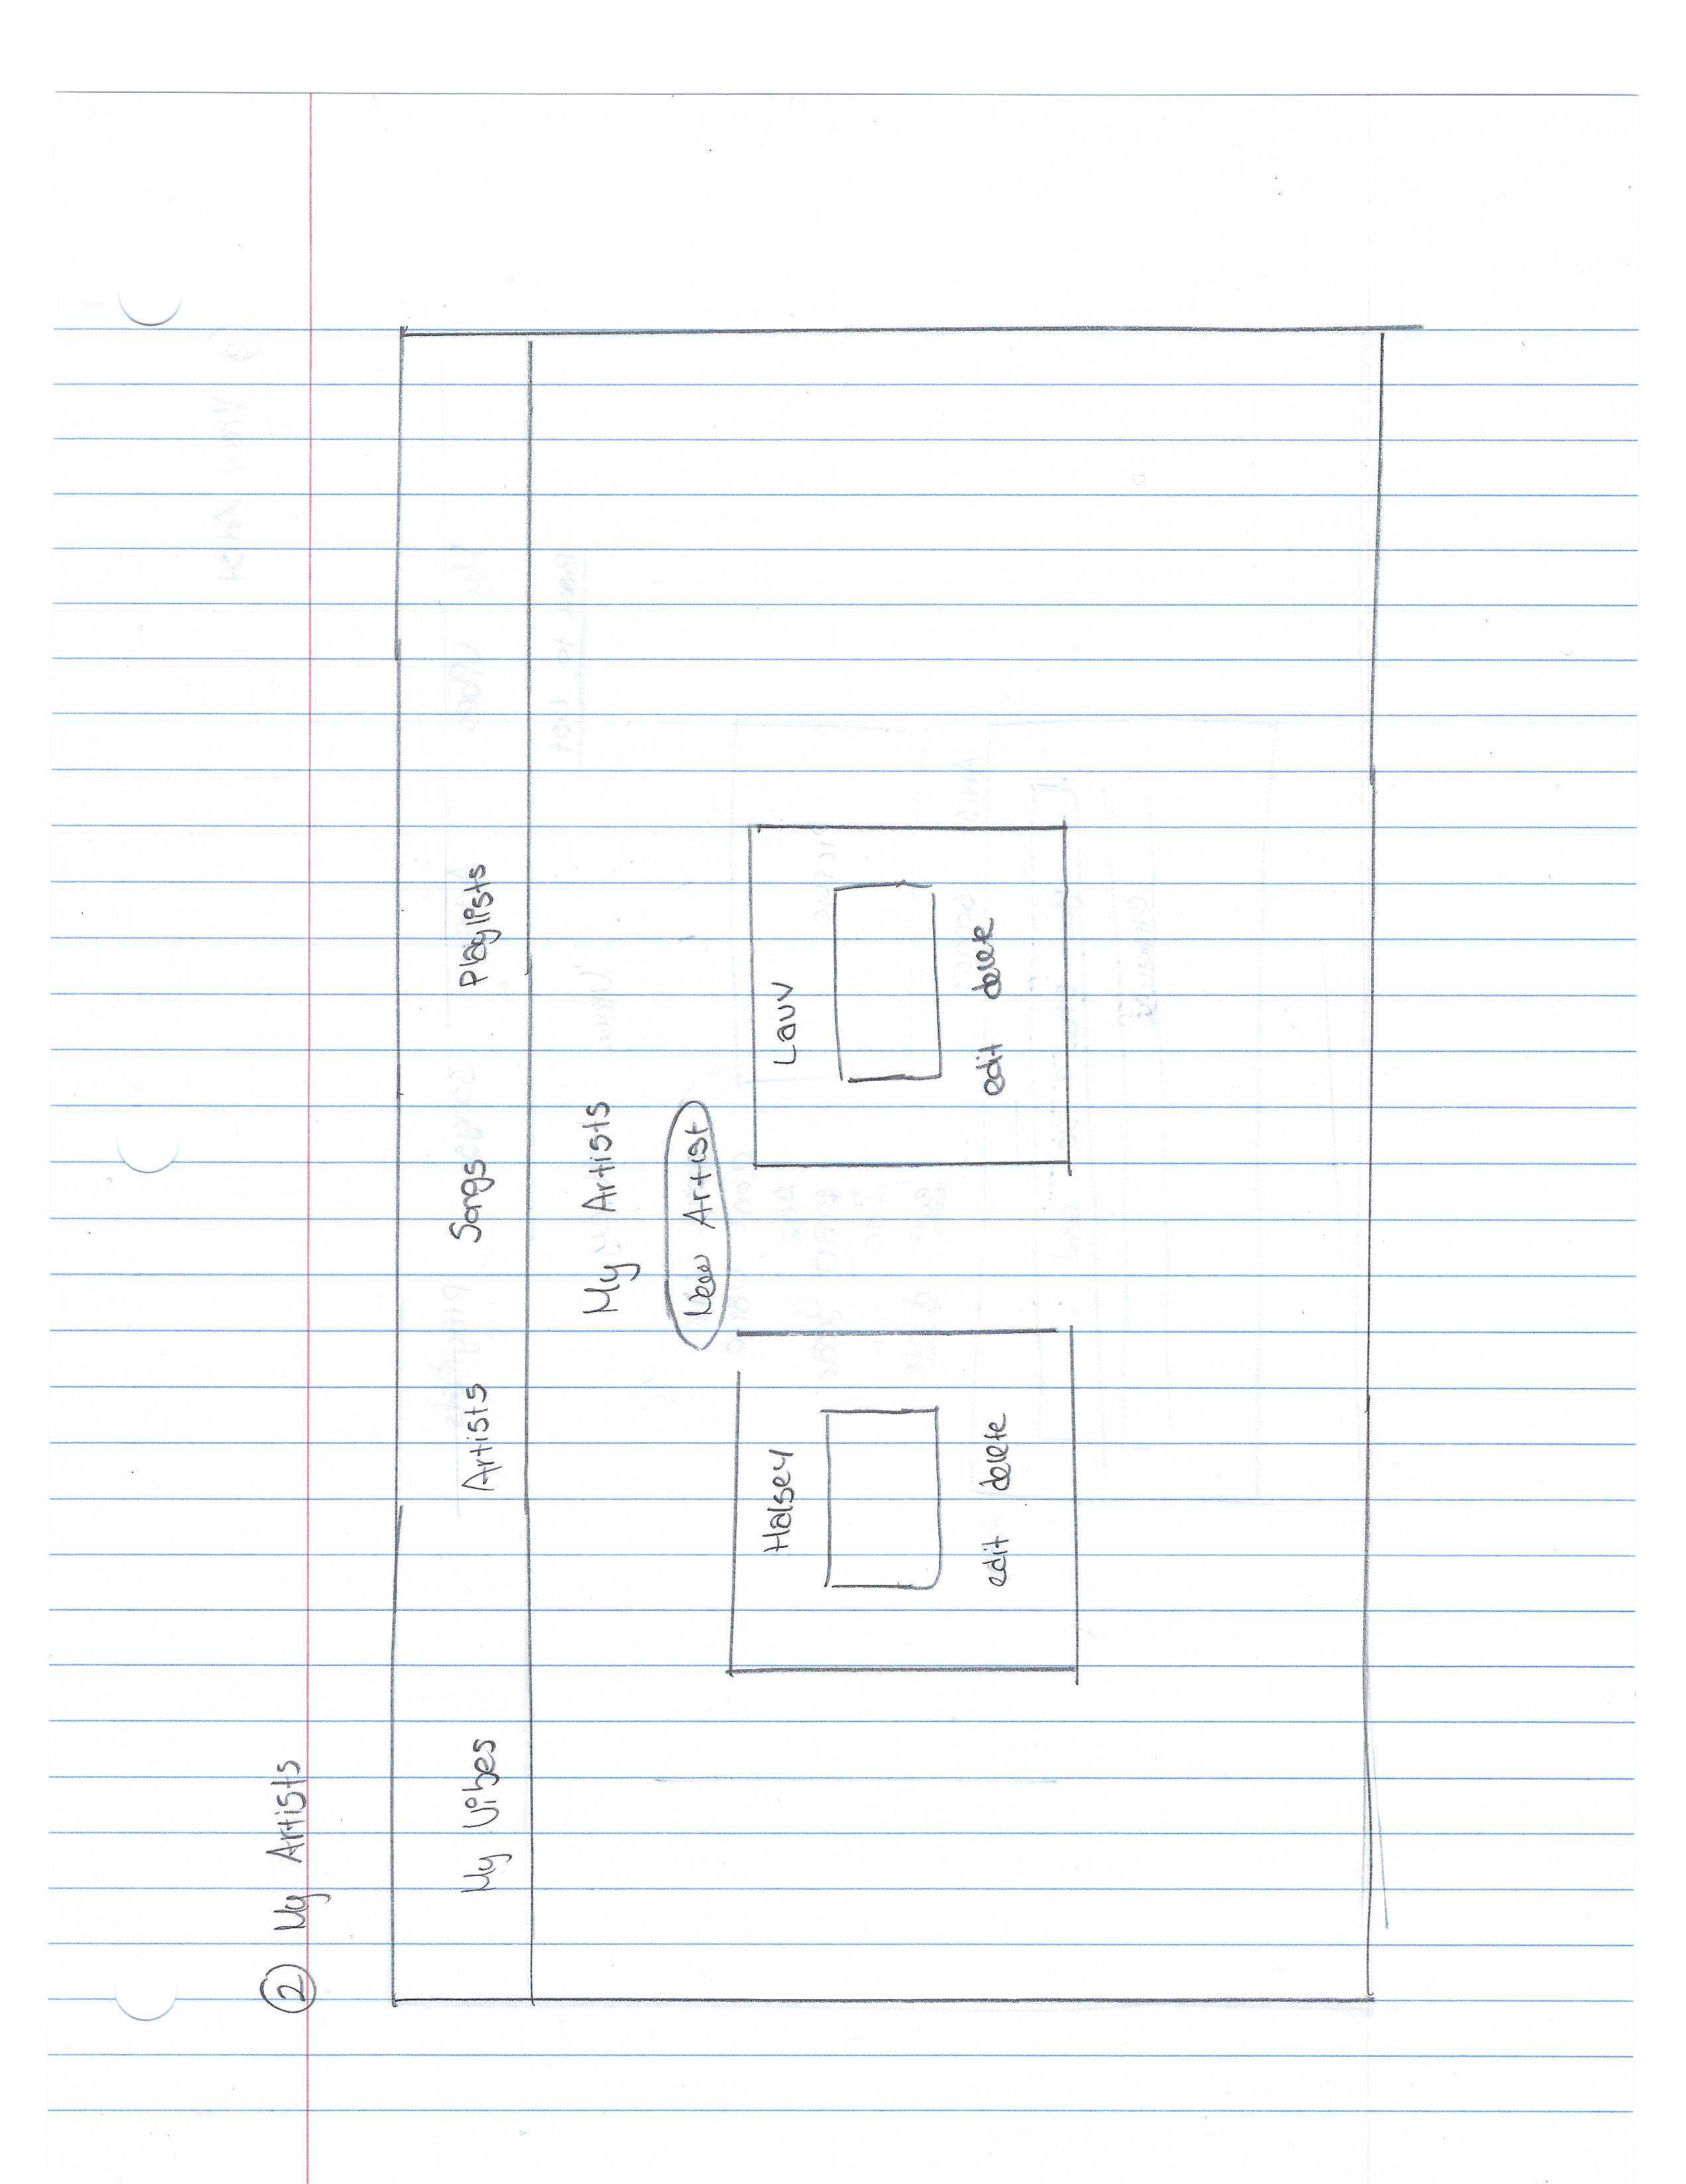 ② My Artists
My Vibes Artists Songs Playlists
My Artists
New Artist
Halsey Lauv
edit delete edit delete